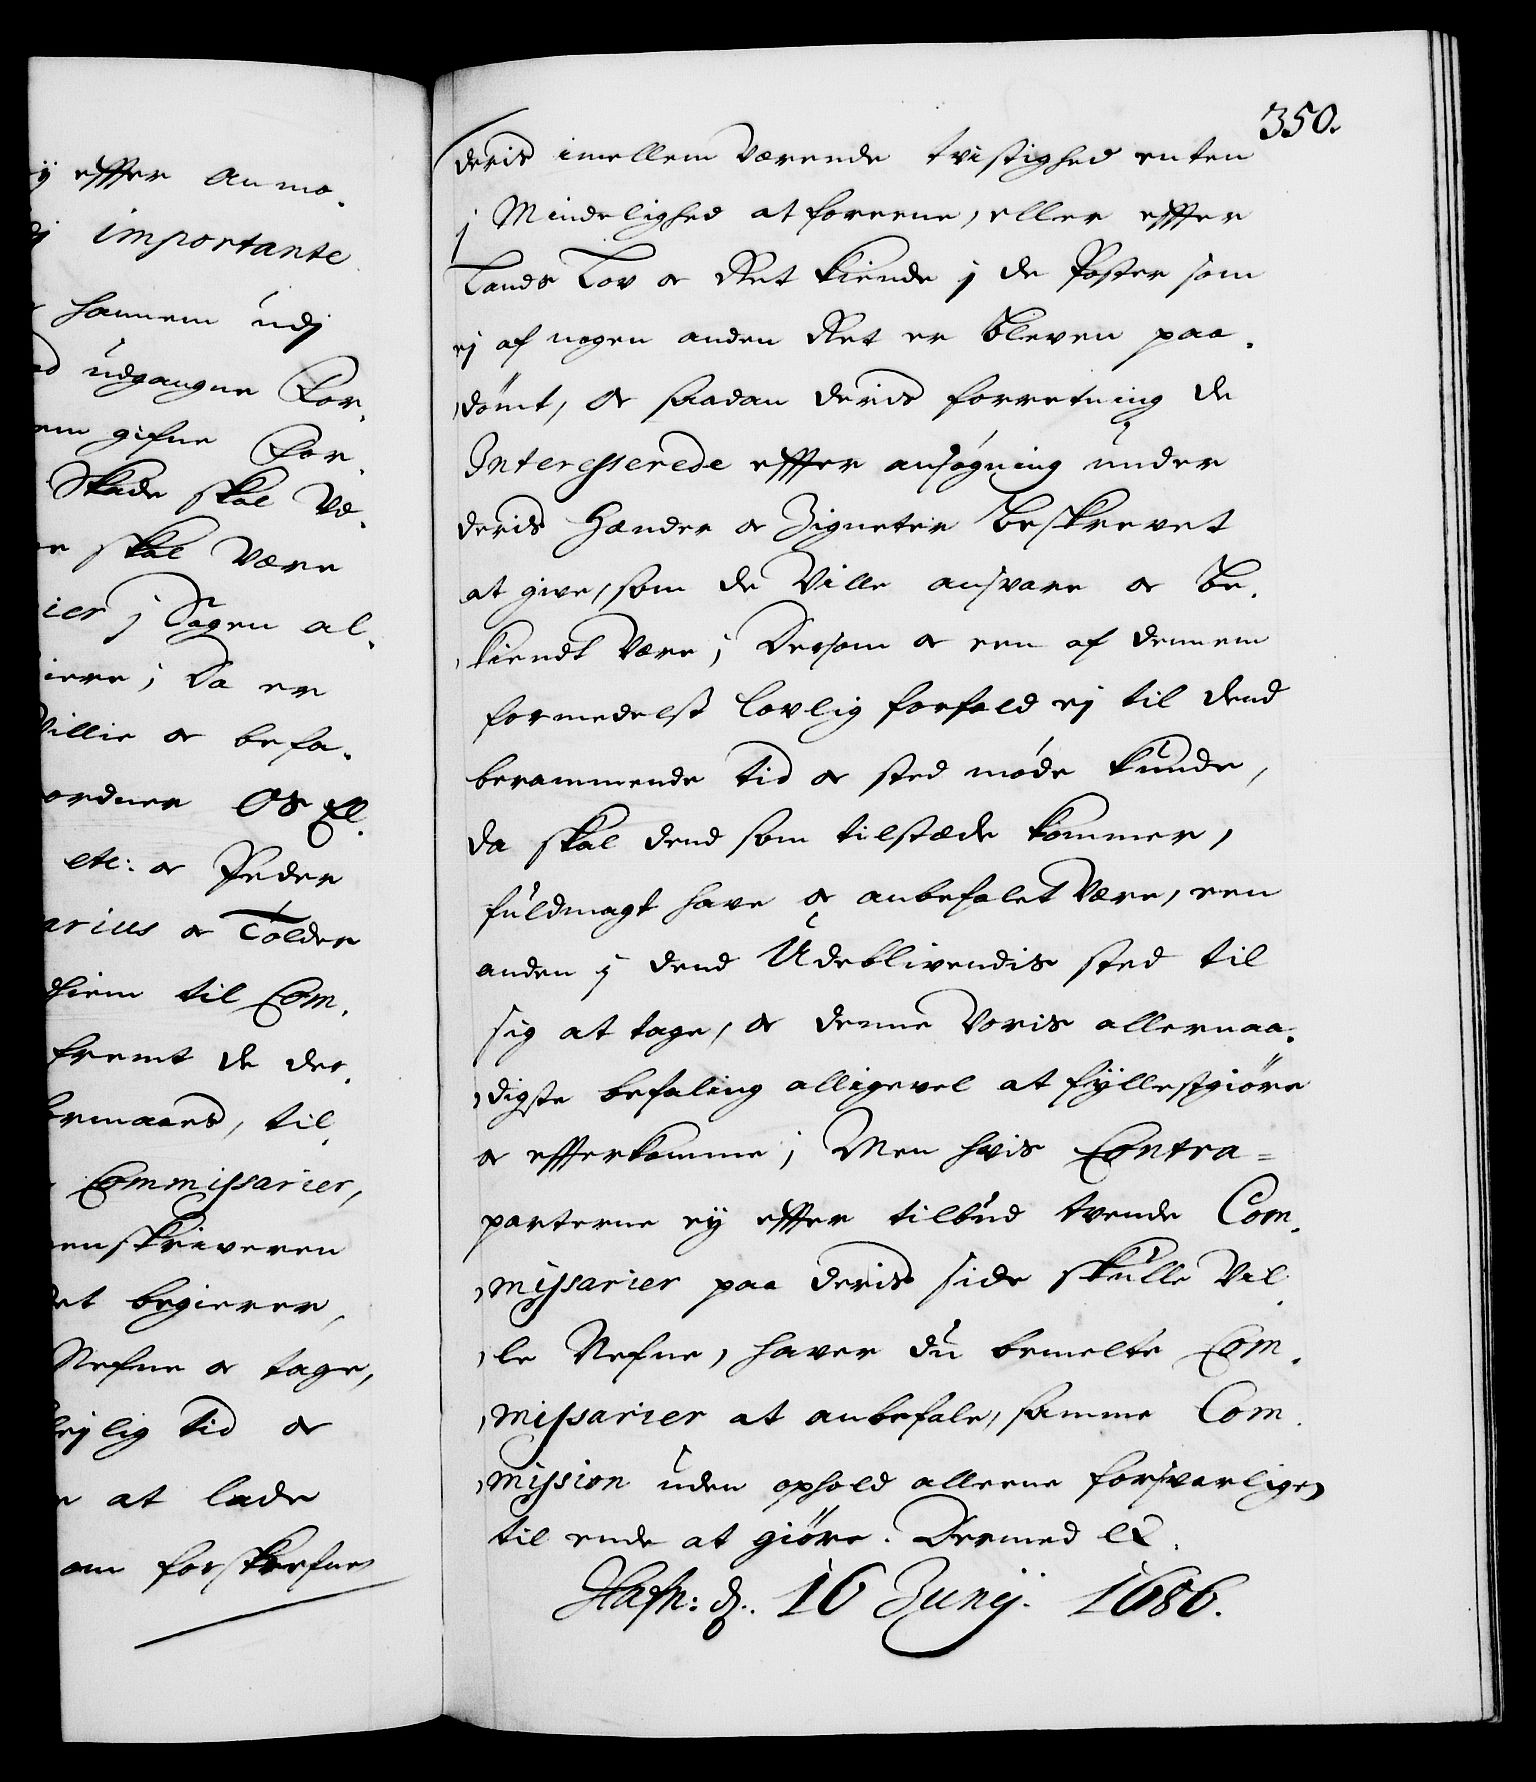 ÿ effter anmo-
importante
hannem udj
udgangne Lov,
gifne For-
Skade skal Væ-
skal Være
ier j Sagen al-
iere; Da er
Villie oc befa-
ordner Os El.
etc: oc Peder
arius oc Tolder
hiem til Com-
fremt de der-
formaaes, til-
Commissarier,
enskriveren
det begierer,
Nefne oc tage,
lejlig tid oc
at lade
om forskrefne
350.
deris imellem værende tvistighed enten
j Mindelighed at foreene, eller effter
Lands Lov oc Ret kiende j de Poster som
ej af nogen anden Ret er bleven paa-
dömt, oc saadan deris forretning de
Interesserede effter ansøgning under
deris Hænder oc Zigneter beskrevet
at give, som de Ville ansvare oc be-
kiendt Være; Dersom oc een af dennem
formedelst lovlig forfald ej til dend
berammende tid oc sted møde kunde,
da skal dend som tilstæde kommer,
fuldmagt have oc anbefalet Være, een
anden j dend Udeblivendis sted til
sig at tage, oc denne Voris allernaa-
digste befaling alligevel at fyllestgiöre
oc effterkomme; Men hvis Contra=
parterne eÿ effter tilbud tvende Com-
missarier paa deris side skulle Vil-
le Nefne, haver du bemelte Com-
missarier at anbefale, samme Com-
mission uden ophold alleene forsvarligen
til ende at giöre. Dermed etc.
Hafn: d. 16 Junij. 1686.